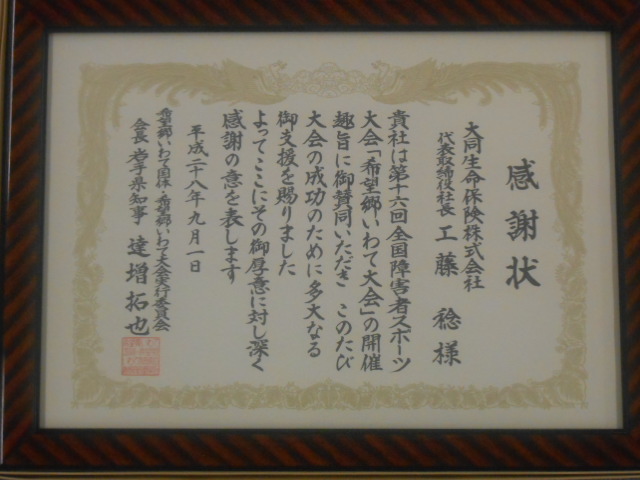 感謝状
大同生命保険株式会社
代表取締役社長 工藤 稔 様
貴社は第十六回全国障害者スポーツ
大会「希望郷いわて大会」の開催
趣旨に御賛同いただき このたび
大会の成功のために多大なる
御支援を賜りました
よってここにその御厚意に対し深く
感謝の意を表します
平成二十八年九月一日
希望郷いわて国体・希望郷いわて大会実行委員会
会長 岩手県知事 達増拓也